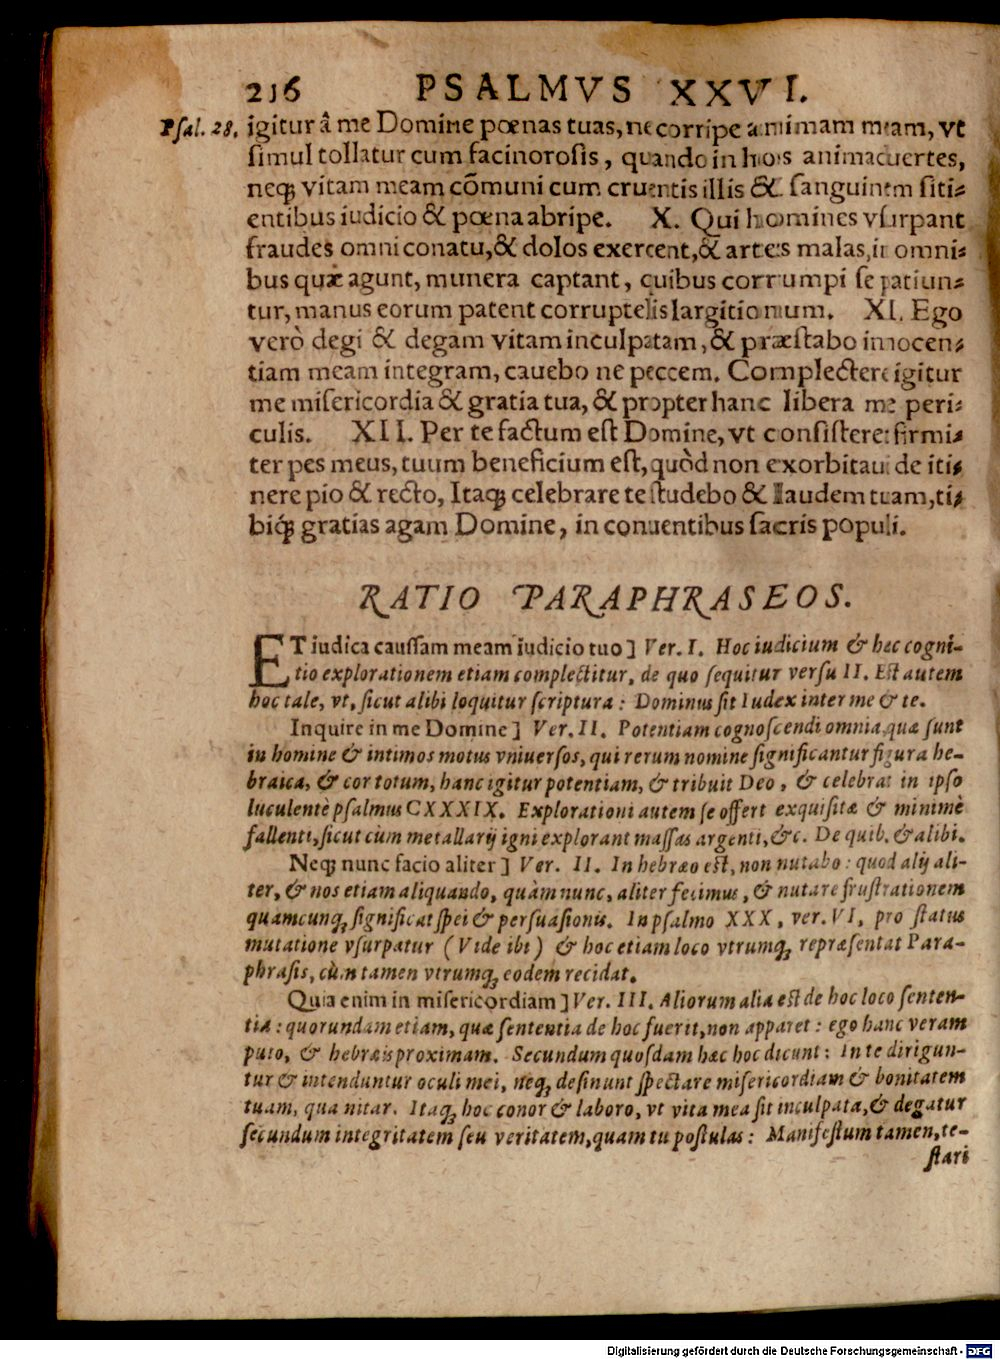 216 PSALMVS XXVI.
Psal. 28. igitur â me Domine pœnas tuas, ne corripe animam meam, vt
simul tollatur cum facinorosis, quando in hos animaduertes,
neq; vitam meam cõmuni cum cruentis illis & sanguinem siti-
entibus iudicio & pœna abripe. X. Qui homines vsurpant
fraudes omni conatu, & dolos exercent, & artes malas, in omni-
bus quæ agunt, munera captant, quibus corrumpi se patiun-
tur, manus eorum patent corruptelis largitionum. XI. Ego
verò degi & degam vitam inculpatam, & præstabo innocen-
tiam meam integram, cauebo ne peccem. Complectere igitur
me misericordia & gratia tua, & propter hanc libera me peri-
culis. XII. Per te factum est Domine, vt consisteret firmi-
ter pes meus, tuum beneficium est, quòd non exorbitaui de iti-
nere pio & recto, Itaq; celebrare te studebo & laudem tuam, ti-
biq́; gratias agam Domine, in conuentibus sacris populi.
RATIO PARAPHRASEOS.
ET iudica caussam meam iudicio tuo] Ver. I. Hoc iudicium & hec cogni-
tio explorationem etiam complectitur, de quo sequitur versu II. Est autem
hoc tale, vt, sicut alibi loquitur scriptura: Dominus sit Iudex inter me & te.
Inquire in me Domine] Ver. II. Potentiam cognoscendi omnia, quæ sunt
in homine & intimos motus vniuersos, qui rerum nomine significantur figura he-
braica, & cor totum, hanc igitur potentiam, & tribuit Deo, & celebrat in ipso
luculentè psalmus CXXXIX. Explorationi autem se offert exquisitæ & minimè
fallenti, sicut cùm metallarij igni explorant massas argenti, &c. De quib. & alibi.
Neq; nunc facio aliter] Ver. II. In hebræo est, non nutabo: quod alij ali-
ter, & nos etiam aliquando, quàm nunc, aliter fecimus, & nutare frustrationem
quamcunq; significat spei & persuasionis. In psalmo XXX, ver. VI, pro status
mutatione vsurpatur (Vide ibi) & hoc etiam loco vtrumq; repræsentat Para-
phrasis, cùm tamen vtrumq; eodem recidat.
Quia enim in misericordiam] Ver. III. Aliorum alia est de hoc loco senten-
tia: quorundam etiam, quæ sententia de hoc fuerit, non apparet: ego hanc veram
puto, & hebræis proximam. Secundum quosdam hæc hoc dicunt: In te dirigun-
tur & intenduntur oculi mei, neq; desinunt spectare misericordiam & bonitatem
tuam, qua nitar. Itaq; hoc conor & laboro, vt vita mea sit inculpata, & degatur
secundum integritatem seu veritatem, quam tu postulas: Manifestum tamen, te-
stari
Digitalisierung gefördert durch die Deutsche Forschungsgemeinschaft - DFG